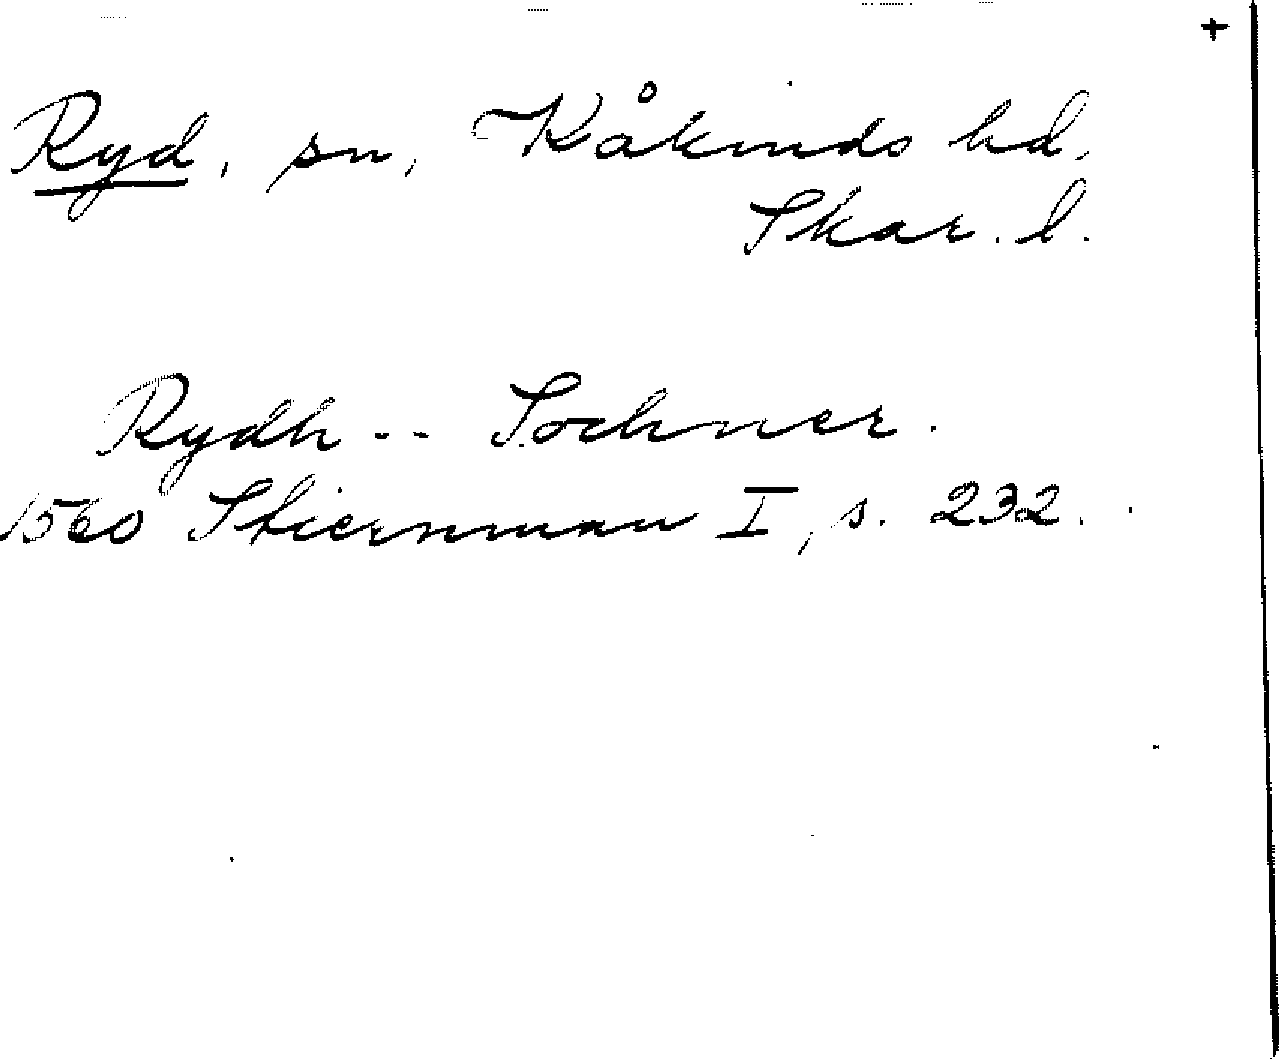 +
Ryd, sn, Kåkinds hd,
Skar. l.
Rydh -- Sochner.
1560 Stiernman I, s. 232.